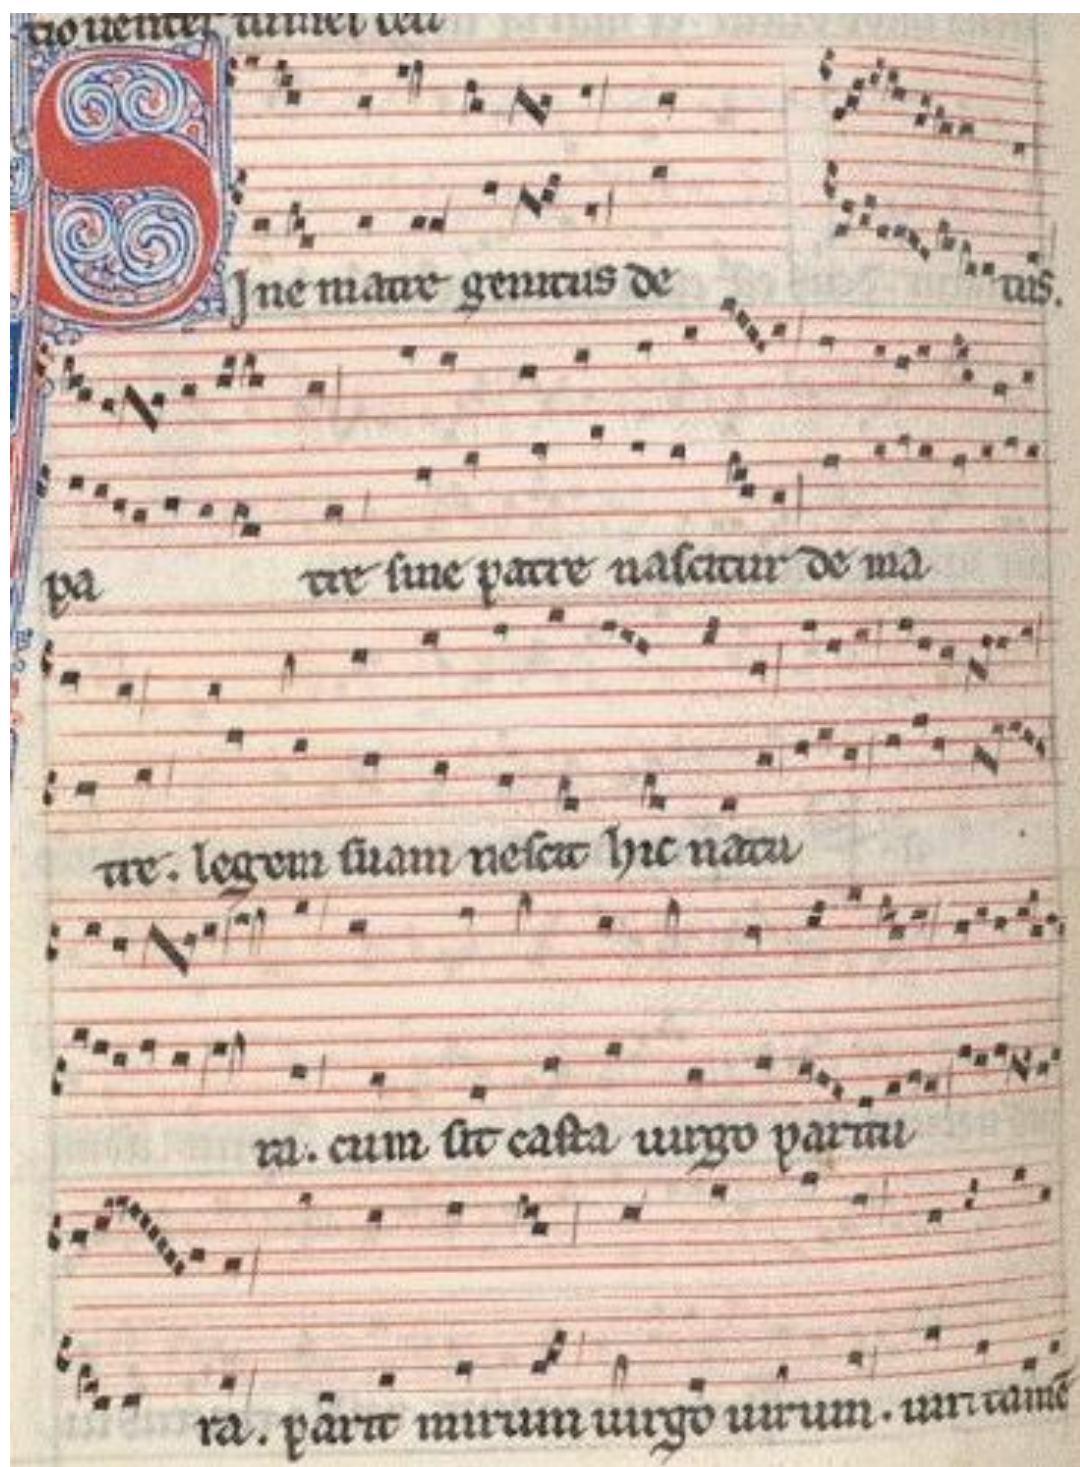 tio uenter tumet celi
Sine matre genitus de tus.
pa tre sine patre nascitur de ma
tre. legem suam nescit hic natu
ra. cum sit casta uirgo paritu
ra. parit mirum uirgo uirum. uiri tamē